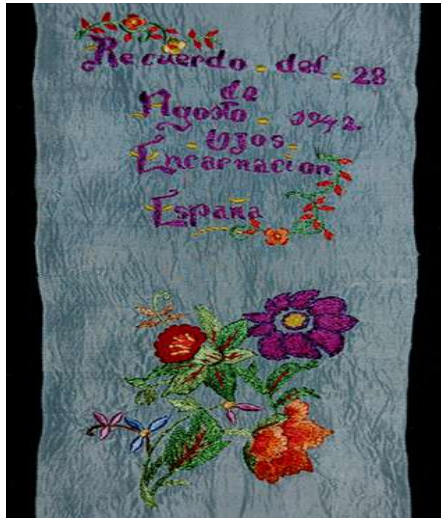 Recuerdo - del - 28
de
Agosto - 1942.
- Ojos -
Encarnacion
España